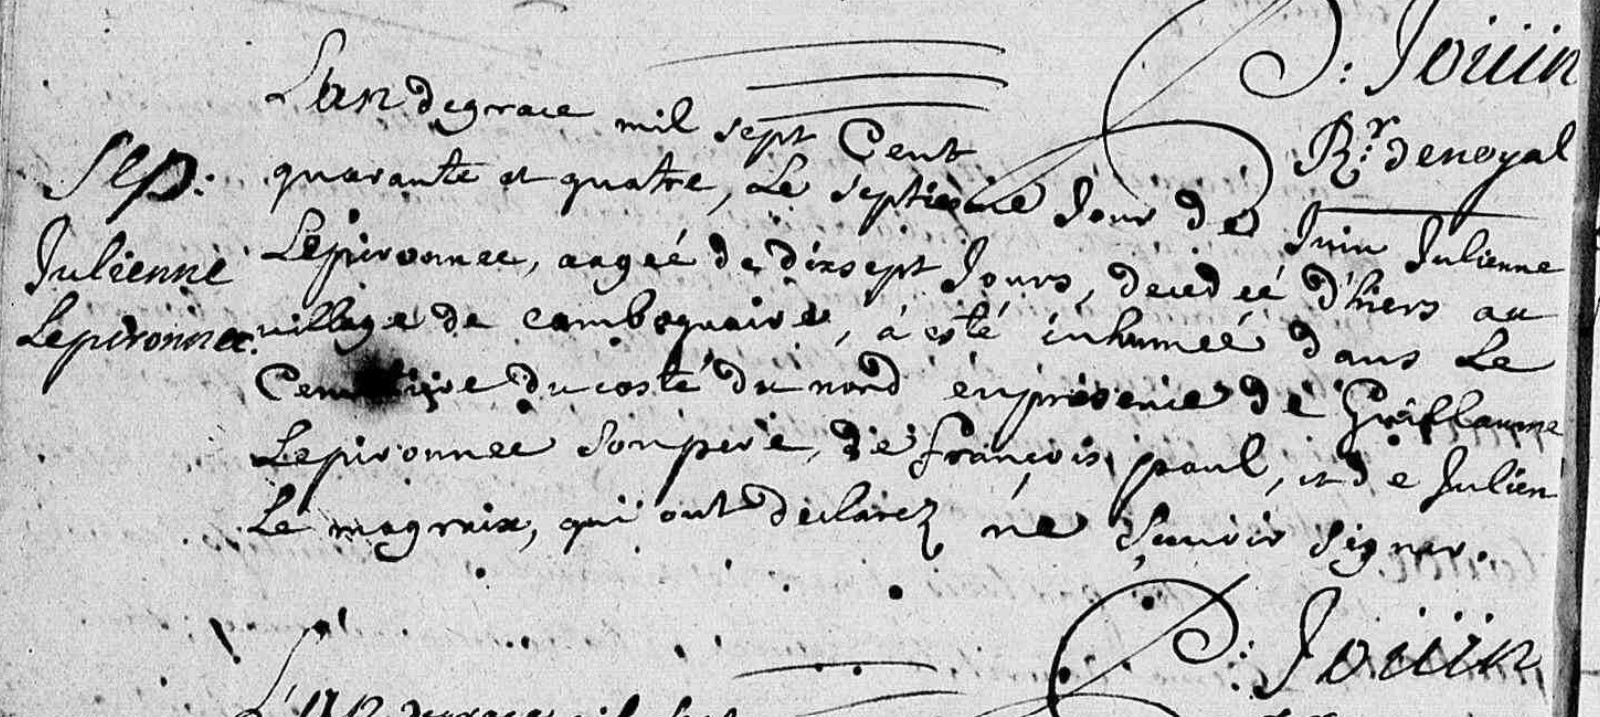 P: Jouin
Rr. denoyal
Sep:
Julienne
Lepironnec.
L'an degrace mil sept Cent
quarante et quatre, Le septiesme Jour de Juin Julienne
Lepironnec, aagéé de dixsept Jours, decedéé d'hiers au
village de cambsquaire, á esté inhuméé dans Le
Cemetiere du costé du nord en presence de Guillaume
Lepironnec son pere, de françois paul, et de Julien
Le magruix, qui ont declarez ne sçauoir signer.
P: Jouin
L'an degrace mil sept